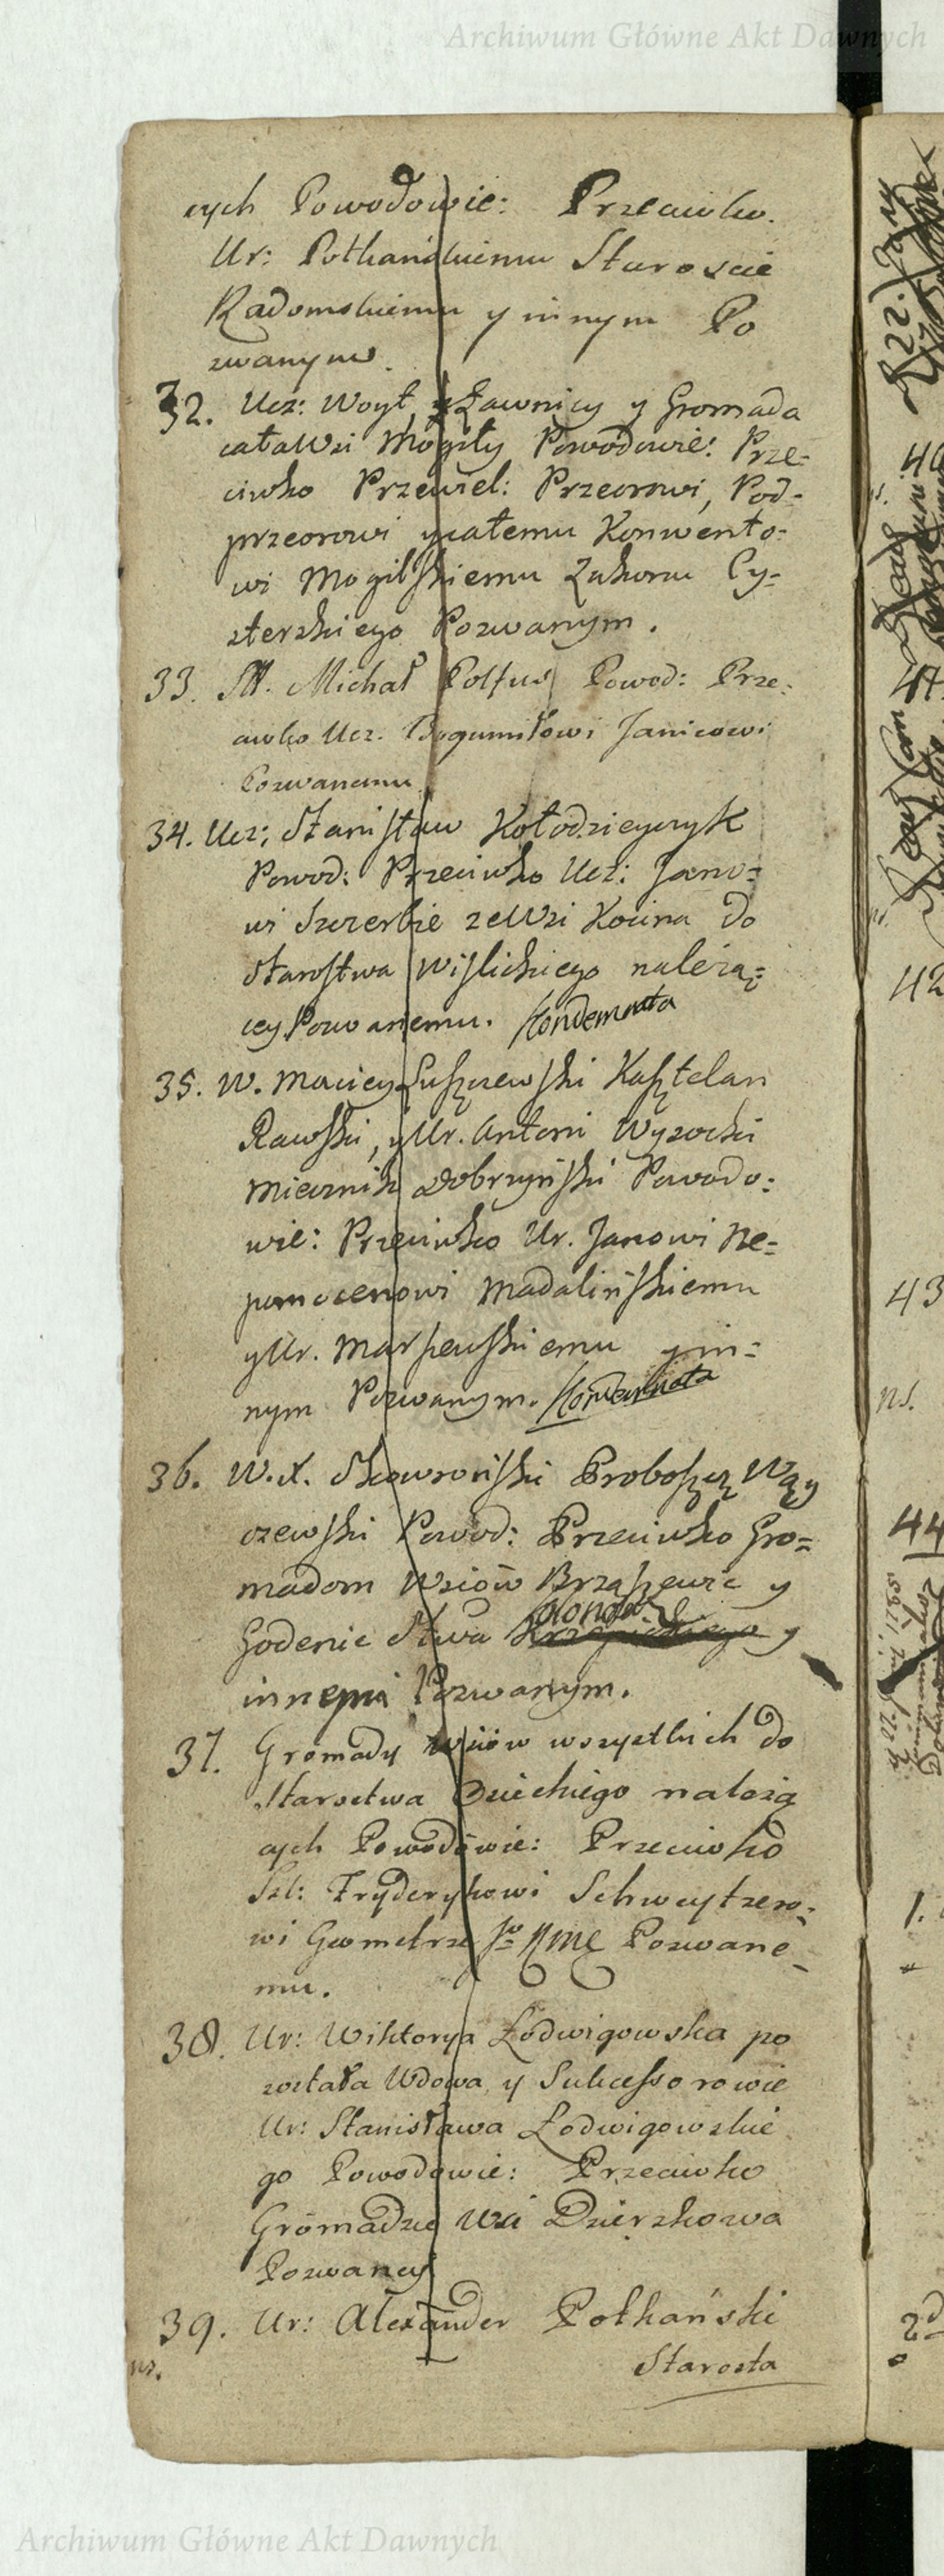 Archiwum Główne Akt Dawnych
cych Powodowie: Przeciwko.
Ur: Potkańskiemu Staroscie
Radomskiemu y innym Po
zwanym.
32. Ucz: Woyt, y Ławnicy y Gromada
cała Wsi Mogiły Powodowie: Prze-
ciwko Przewiel: Przeorowi, Pod-
przeorowi y całemu Konwento-
wi Mogilskiemu Zakonu Cy-
sterskiego Pozwanym.
33. Michał Powod: Prze-
ciwko Ucz. Bogumiłowi Janicowi
Pozwanemu
34. Ucz: Stanisław Kołodzieyczyk
Powod: Przeciwko Ucz: Jano=
wi Szczerbie ze Wsi Kocina do
Starostwa Wislickiego należą=
cey Pozwanemu. Kondemnata
35. W. Maciey Łuszczewski Kasztelan
Rawski, y Ur. Antoni Wysocki
Miecznik Dobrzyński Powodo=
wie: Przeciwko Ur. Janowi Ne=
pomocenowi Madalińskiemu
y Ur. Marszewskiemu y in=
nym Pozwanym. Kondemnata
36. W. X. Skowroński Proboszcz
czewski Powod: Przeciwko Gro=
madom Wsiów y
Godenic Stwa y
innemi Pozwanym.
37. Gromady wsiów wszystkich do
Starostwa należą
cych Powodowie: Przeciwko
Szl: Fryderykowi Schweytzero-
wi Geometrze Pozwane-
mu.
38. Ur: Wiktorya Łodwigowska po
została Wdowa y Sukcessorowie
Ur: Stanisława Łodwigowskie
go Powodowie: Przeciwko
Gromadzie Wsi Dzierzkowa
Pozwaney
39. Ur: Alexander Potkański
ns.
Starosta
40
41
42
43
ns.
44
1.
Archiwum Główne Akt Dawnych